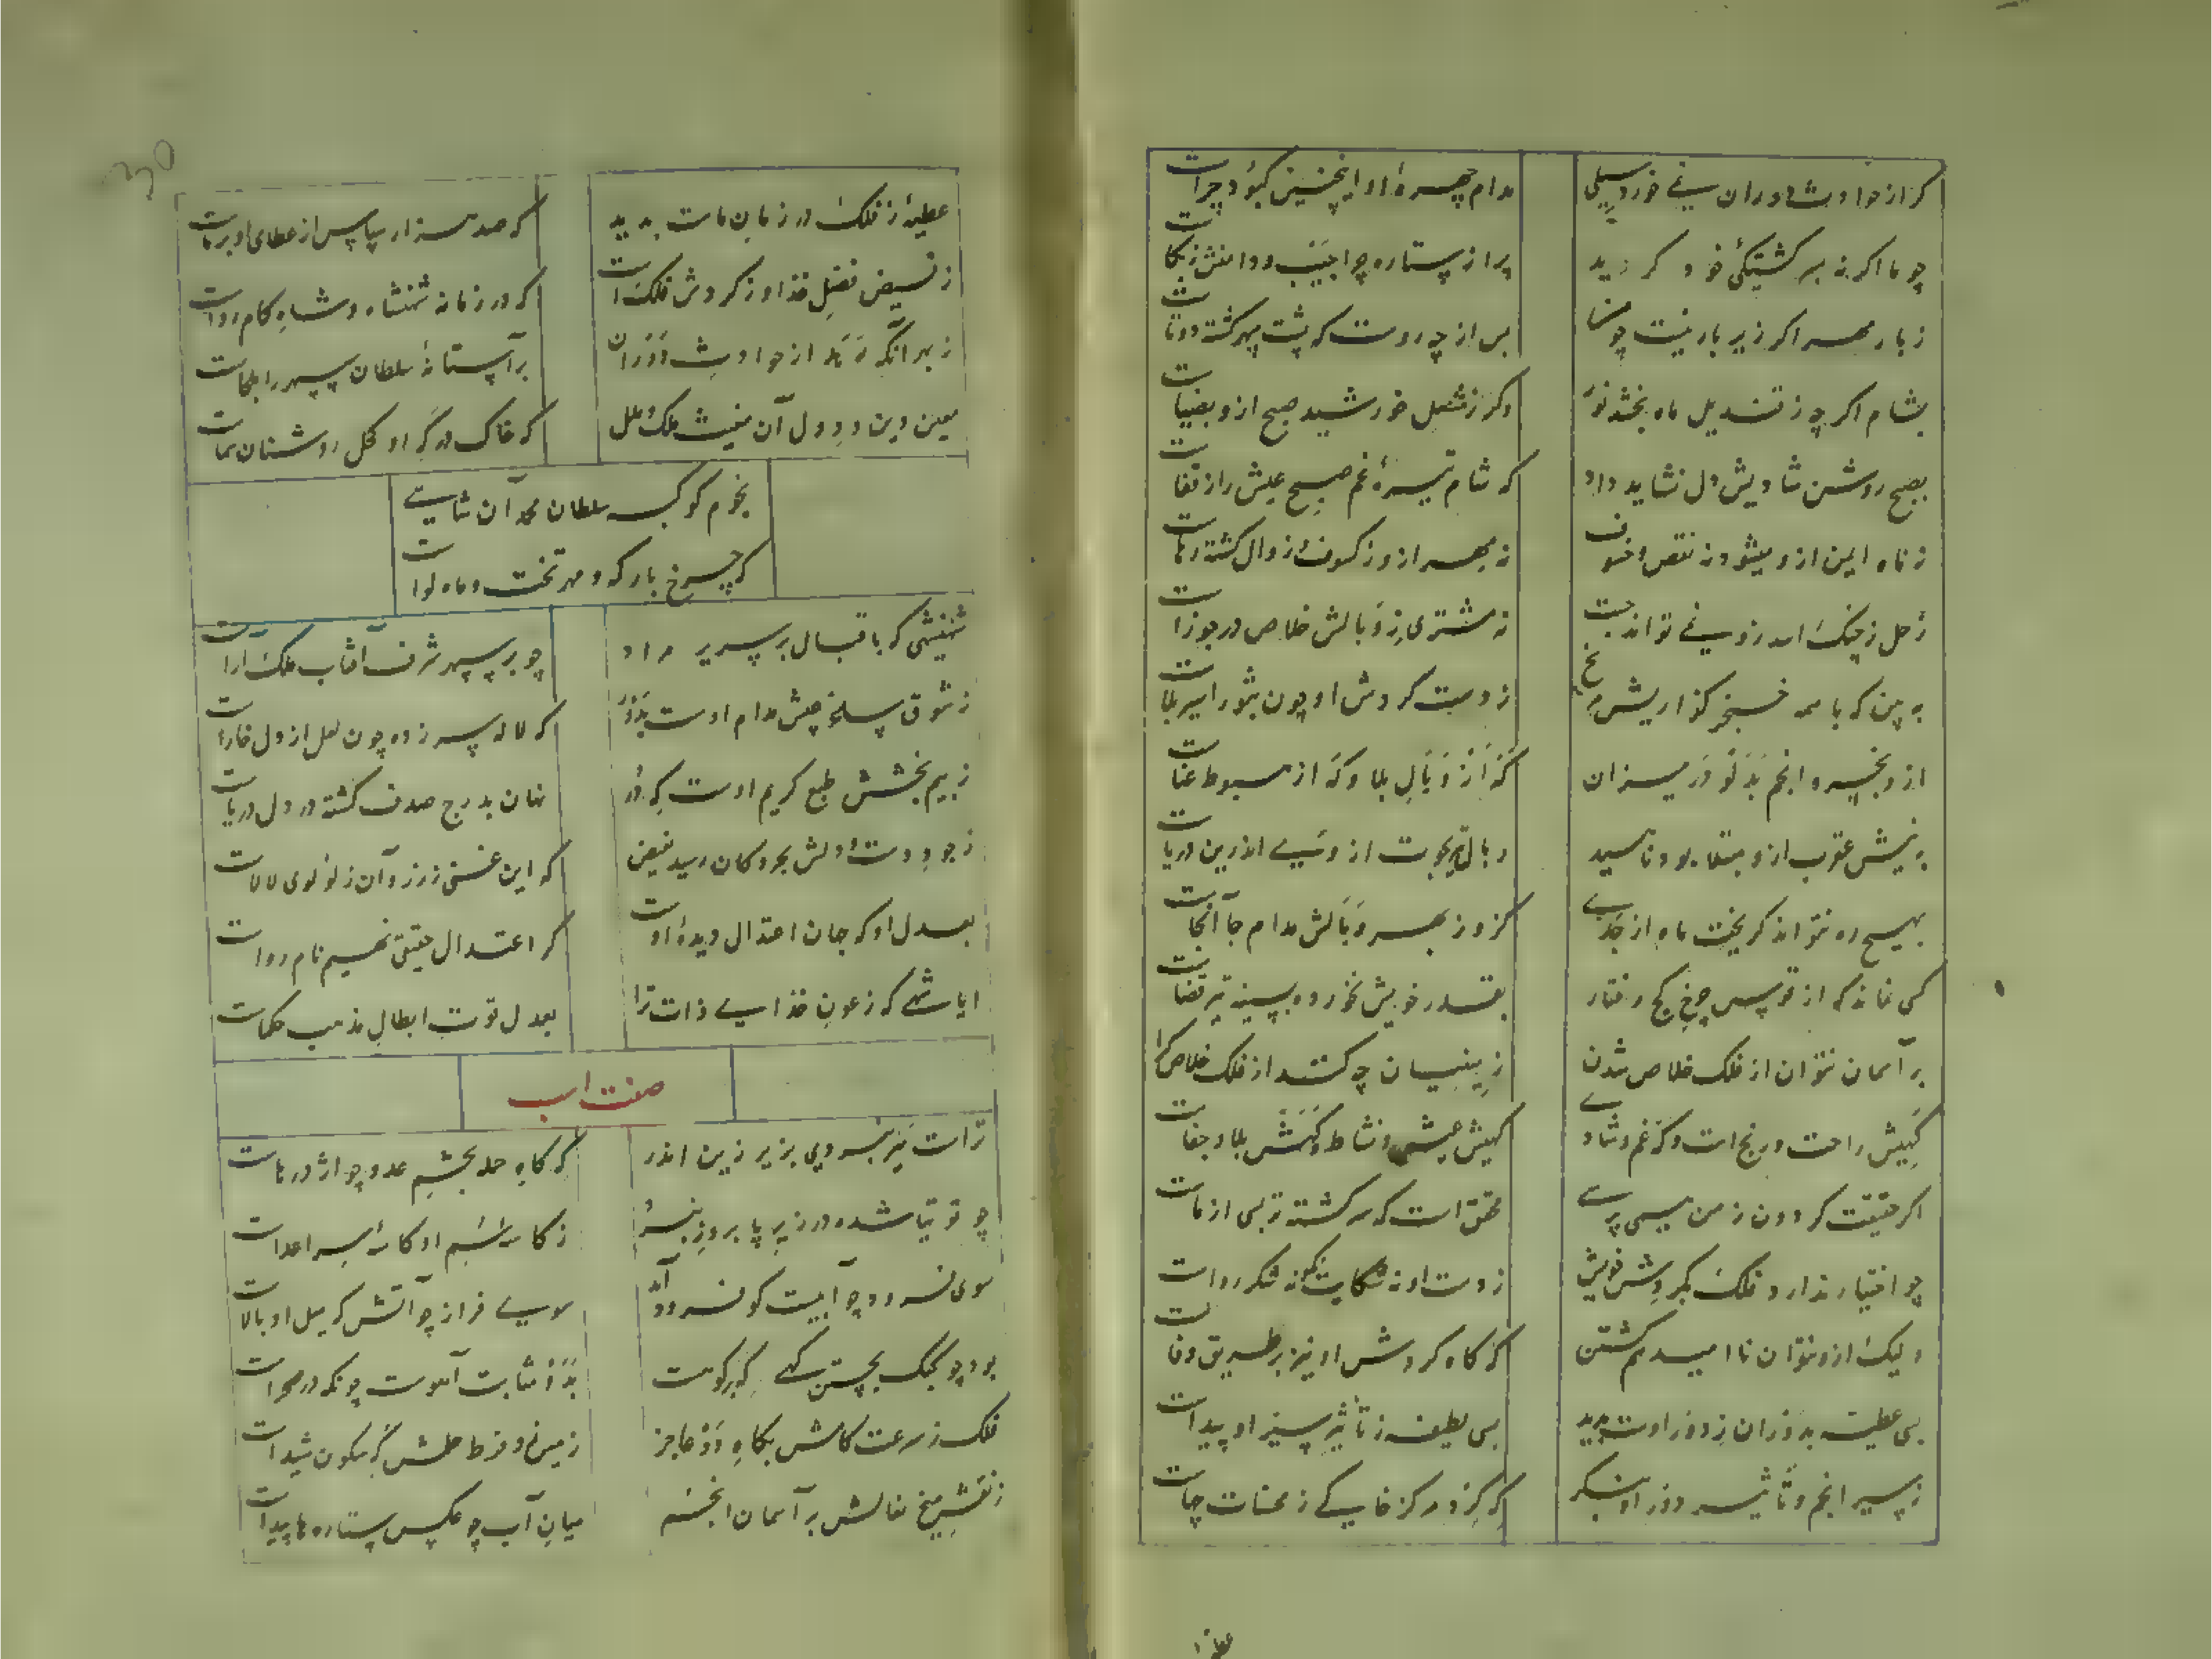 کر از حوادث دوران سینے خورد سیلی
مدام چهرهٔ او اینچنین کبود چراست
چو ما اگر نه بسر کشتیکیٔ خود کردید
پر از ستاره چرا جیب و دامنش زبکاست
ز بار مهر اگر زیر بار نیست چو من
بس از چه روست که پشت سپهر گشته دوتاست
بشام اگر چه ز قندیل ماه بخشد نور
وکر ز مشعل خورشید صبح ازو بضیاست
بصبح روشن شادیش دل نشاید داد
که شام تیرهٔ غم صبح عیش را ز قفاست
نه ماه ایمن ازو میشود ز نقص و خسوف
نه مهر ازو ز کسوف و زوال گشته رهاست
زحل ز چنگ اسد زو نے تواند جست
نه مشتری ز وبالش خلاص در جوزاست
به بین که با همه خنجر گذاریش مریخ
ز دست گردش او چون بثور اسیر بلاست
از و بخسیر و انجم بدلو و در میزان
که از وبال بلا و که از هبوط عناست
به نیش عقرب ازو مبتلا بود ناهید
وبال تیر بحوت از وی اندرین دریاست
بهیچ ره نتواند گریخت ماه از جدی
کزو ز بهر وبالش مدام جا آنجاست
کسی نماند که از قوس چرخ کج رفتار
بقدر خویش نخورده بسینه تیر قضاست
بر آسمان نتوان از فلک خلاص شدن
زمینیان چه کنند از فلک خلاص کراست
کهیش راحت و رنج است و که غم و شادی
کهیش عیش و نشاط و کهش بلا و جفاست
اگر حقیقت گردون ز من همی پرسی
محقق است که سرگشته تر بسی از ماست
چو اختیار ندارد فلک بگردش خویش
ز دست او نه شکایت نکو نه شکر رواست
ولیک ازو نتوان ناامید هم گشتن
که گاه گردش او نیز بر طریق وفاست
بسی عطیه بدوران ز دور اوست پدید
بسی لطیفه ز تأثیر سیر او پیداست
ز سیر انجم و تأثیر دور او بنگر
که کرد مرکز خاکی ز محنات چهاست
عطیهٔ
عطیهٔ ز فلک در زمان ماست پدید
که صد هزار سپاس از عطای او بر ماست
ز فیض فضل خدا و ز گردش فلک است
که در زمانه شهنشاه و شاه کام رواست
ز بهر آنکه رهد از حوادث دوران
بر آستانهٔ سلطان سپهر را ملجاست
معین دین و دول آن مغیث ملک و ملل
که خاک درگه او کحل روشنان سماست
نجوم کوکبه سلطان محمد آن شاهی
که چرخ بارگه و مهر تخت و ماه لواست
شهنشهی که باقبال بر سریر مراد
چو بر سپهر شرف آفتاب ملک آراست
ز شوق سلخ جیش مدام اوست بدور
که لاله سر زده چون لعل از دل خاراست
ز بیم بخشش طبع کریم اوست که در
نهان بدرج صدف گشته در دل دریاست
ز جود دست و دلش بحر و کان رسید بفیض
که این غنی ز زر و آن ز لولوی لالاست
بعدل او که جهان اعتدال دیدهٔ اوست
گر اعتدال حقیقی نهیم نام رواست
ایا شهی که ز عون خدای ذات ترا
بعدل قوت ابطال مذهب حکماست
صفت اسب
تراست نیز نبردی بزیر زین اندر
که گاه حمله بچشم عدو چو اژدرهاست
چو توتیا شده در زیر پا بروز نبرد
ز کاسهٔ سم او کاسهٔ سر اعداست
سوی فرود چو آبیست کو فرود آید
سوی فراز چو آتش که میل او بالاست
بود چو کبک بجستن گهی که بر کوهست
بدو مشابهت آهوست چونکه در صحراست
فلک ز سرعت گامش بگاه دو عاجز
زمین ز فرط حلمش گه سکون شیداست
ز نقش میخ نعالش بر آسمان انجم
میان آب چو عکس ستاره‌ها پیداست